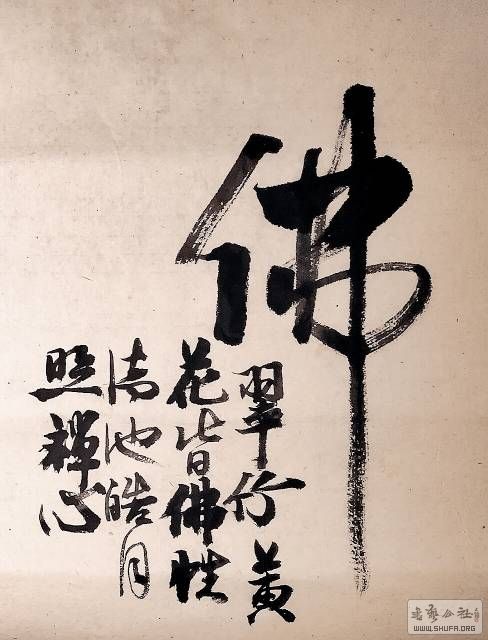 佛
翠竹黄
花皆佛性
清池皓月
照禅心
WWW.SHUFA.ORG